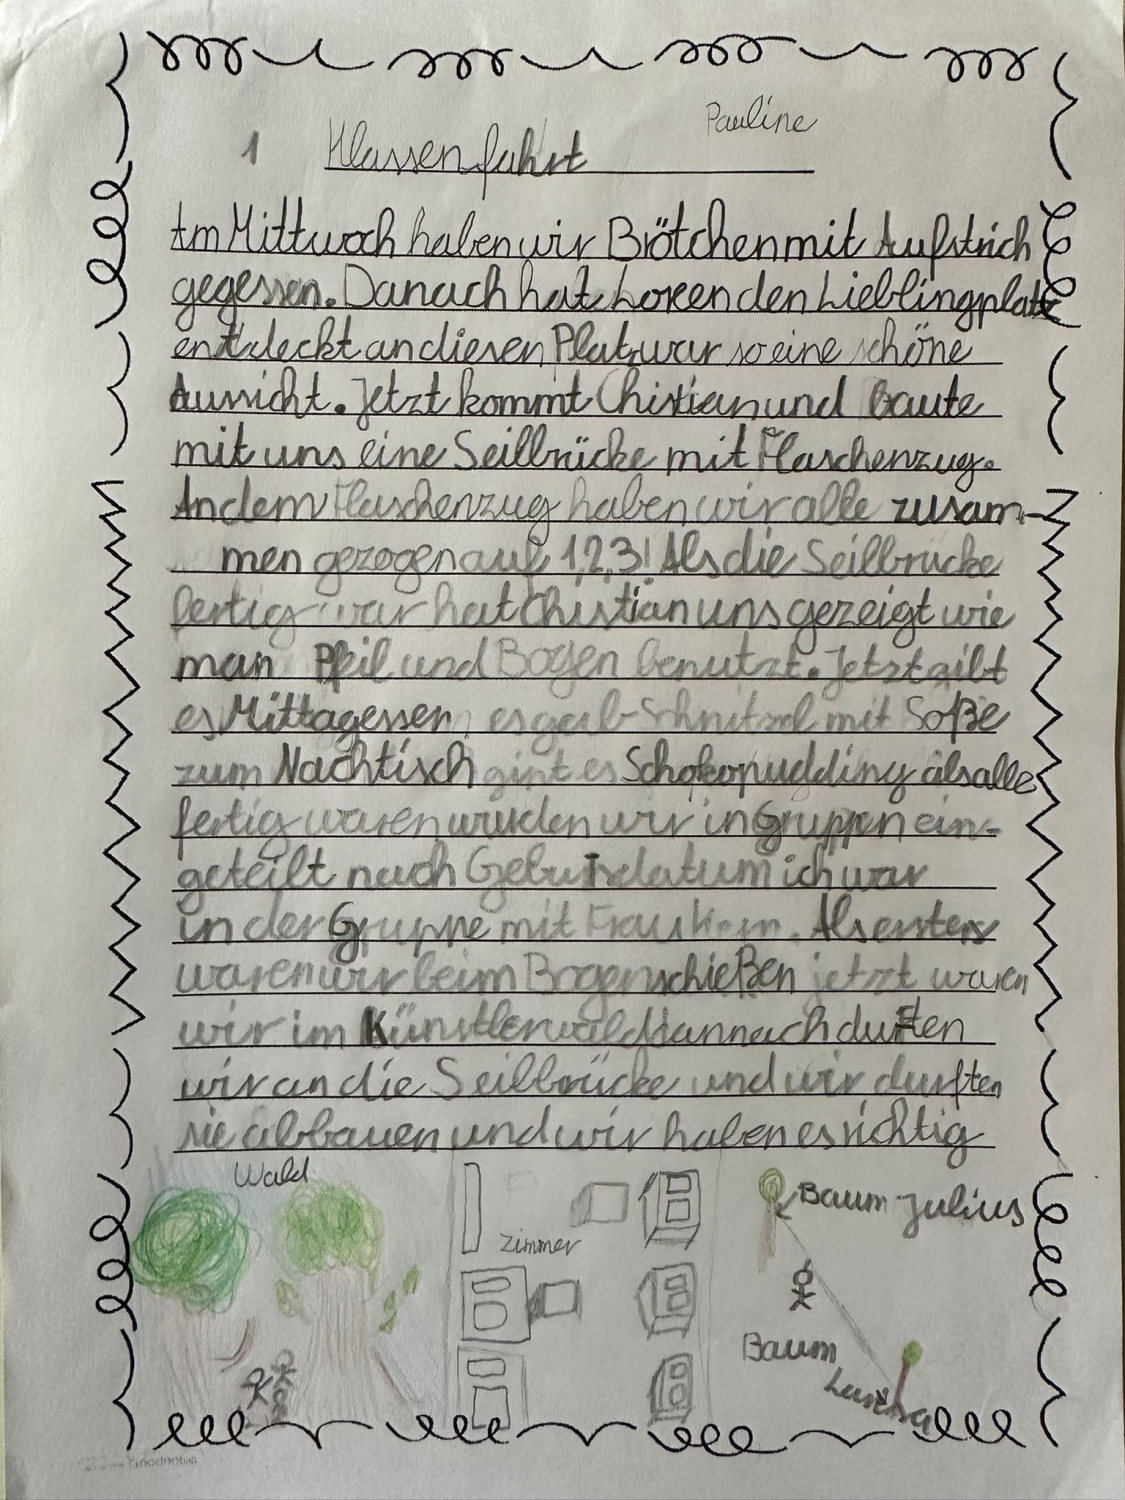 Pauline
1 Klassenfahrt
Am Mittwoch haben wir Brötchen mit Aufstrich
gegessen. Danach hat Loreen den Lieblingplatz
entdeckt an diesen Platz war so eine schöne
Aussicht. Jetzt kommt Christian und baute
mit uns eine Seilbrücke mit Flaschenzug.
An dem Flaschenzug haben wir alle zusam-
men gezogen auf 1,2,3! Als die Seilbrücke
fertig war hat Christian uns gezeigt wie
man Pfeil und Bogen benutzt. Jetzt gibt
es Mittagessen es gab Schnitzel mit Soße
zum Nachtisch gibt es Schokopudding als alle
fertig waren wurden wir in Gruppen ein-
geteilt nach Geburtsdatum ich war
in der Gruppe mit Frau. Als erstes
waren wir beim Bogenschießen jetzt waren
wir im Künstlerwald dannach durften
wir an die Seilbrücke und wir durften
sie abbauen und wir haben es richtig
Wald
Zimmer
Baum Julius
Baum